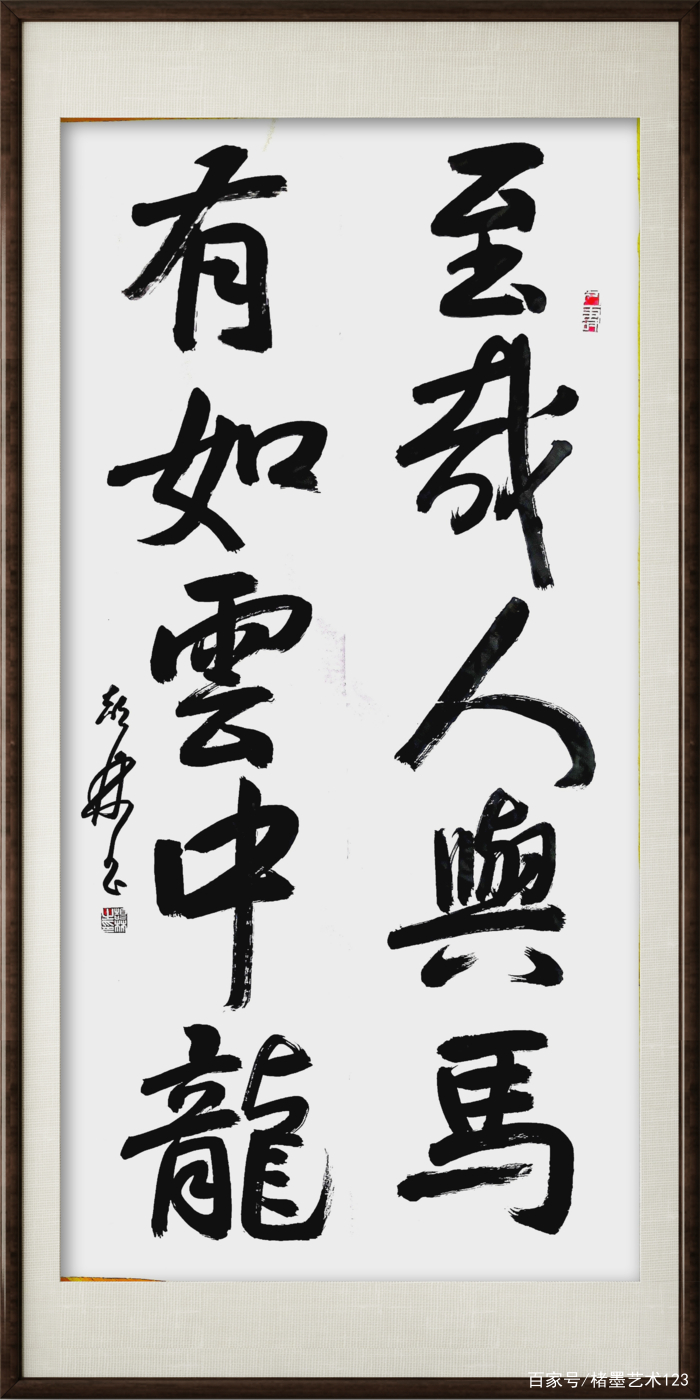 至哉人與馬
有如雲中龍
百家号/楮墨艺术123